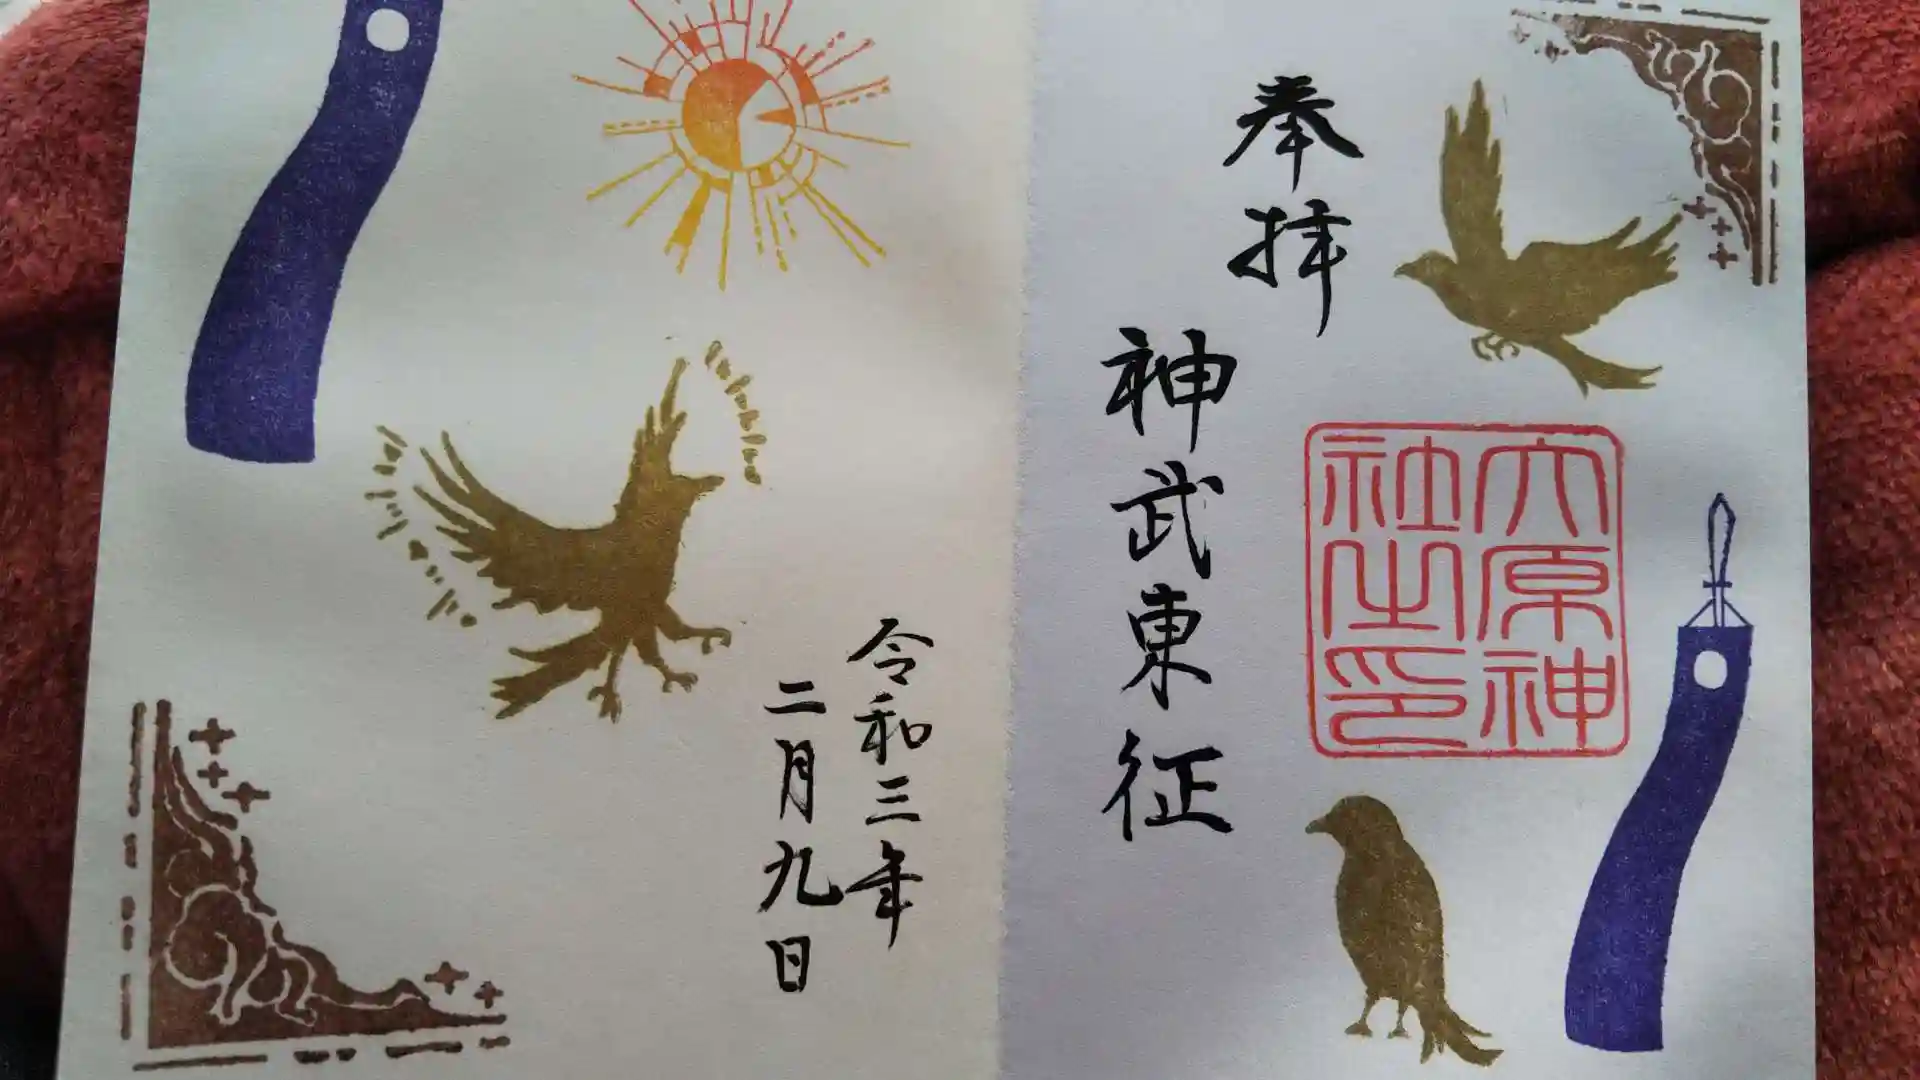 奉拝
神武東征
六原神
社之印
令和三年
二月九日